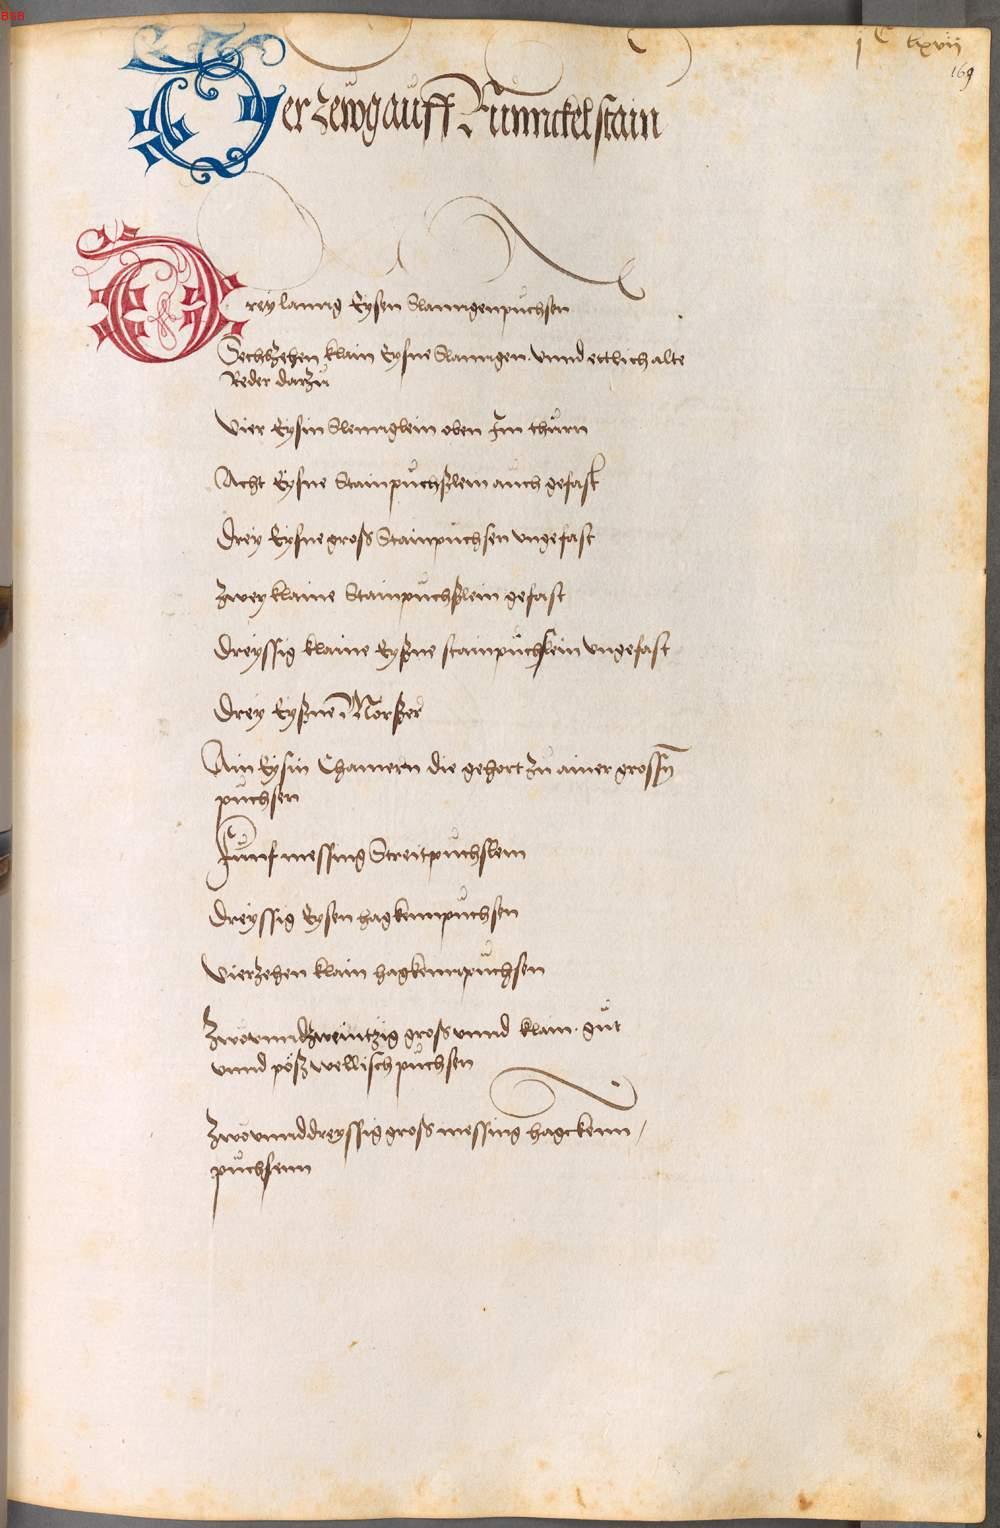 BSB
j C lxvij
169
Der zewg auff Runnckelstain
Drey lanng Eysen Slanngenpuchsen
Sechtzehen klain Eysne Slanngen. vnnd ettlich alte
Reder dartzu
Vier Eysin Slennglein oben Im thurn
Acht Eysne Stainpuchßlein auch gefast
Drey Eysne gross Stainpuchsen vngefast
Zwey klaine Stainpuchßlein gefast
Dreyssig klaine Eyßne stainpuchslein vngefast
Drey Eyßne Morßer
Ain Eysin Chamern die gehort zu ainer grossn
puchsen
Funf messing Streitpuchslein
Dreyssig Eysen hagkennpuchsen
Vierzehen klain hagkennpuchsen
Zwovnndzweintzig gross vnnd klain. gut
vnnd pöß wellisch puchsen
Zwovnnddreyssig gross messing hagckenn /
puchsenn